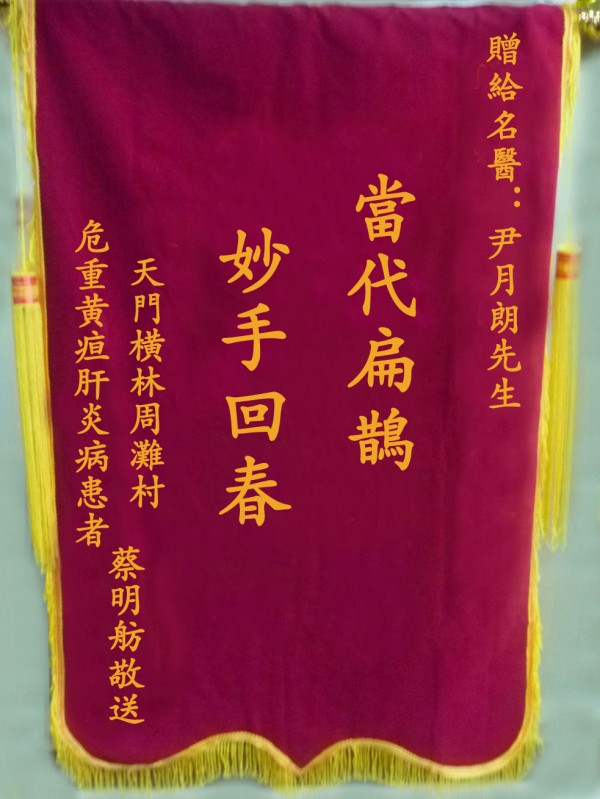 贈給名醫：尹月朗先生
當代扁鵲
妙手回春
天門橫林周灘村
危重黄疸肝炎病患者
蔡明舫敬送